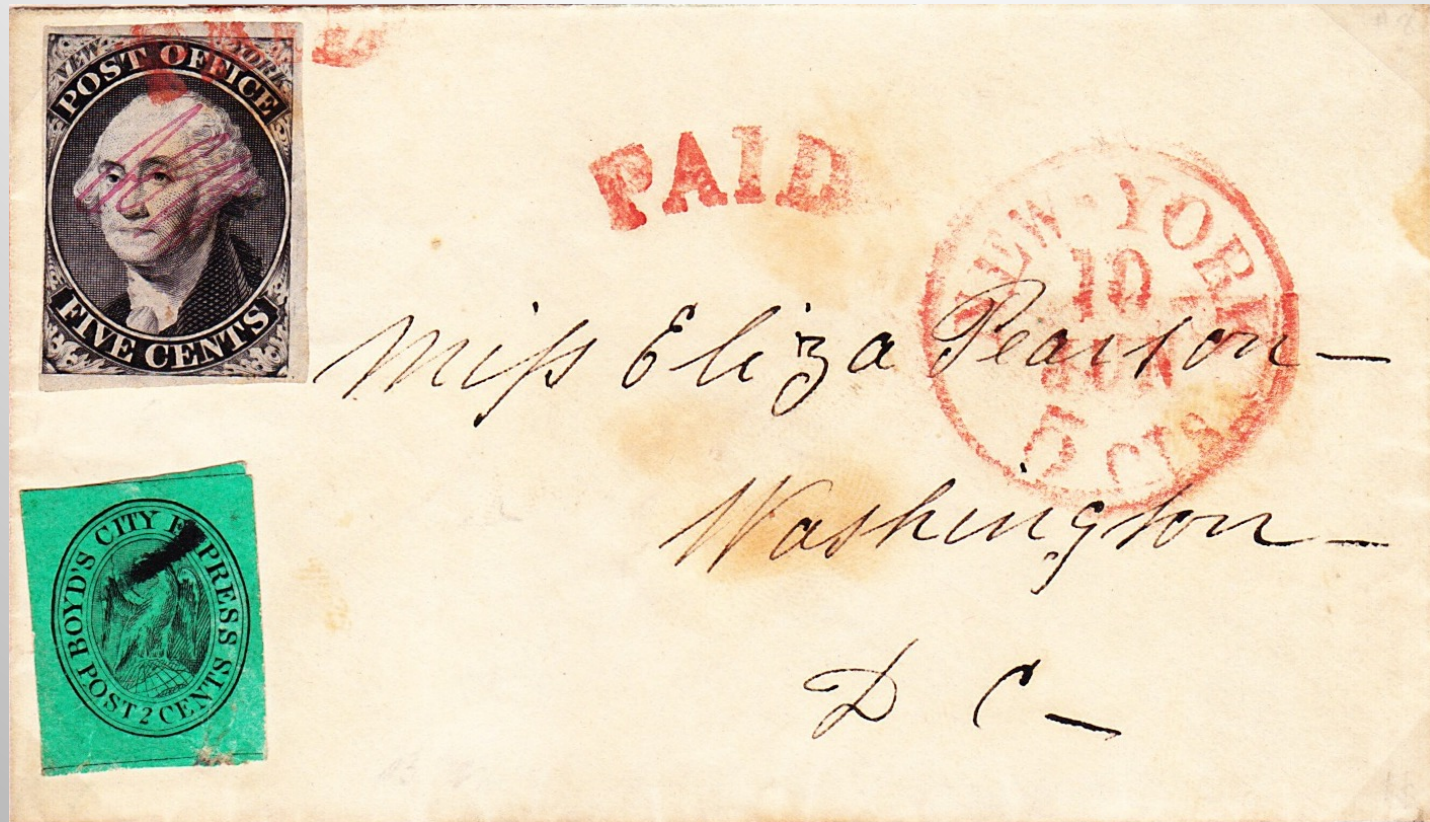 NEW YORK
POST OFFICE
FIVE CENTS
PAID
NEW-YORK
10
JUN
5 CTS
Miſs Eliza Pearson—
Washington—
D C—
BOYD'S CITY EXPRESS
POST 2 CENTS